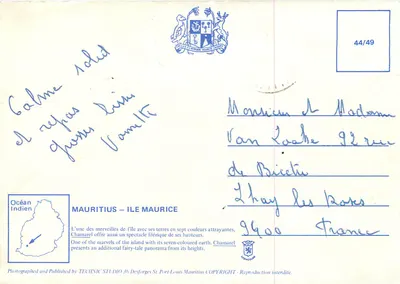 44/49
Calme soleil
et repos
grosses bises
Monsieur et Madame
92 rue
de Bicetre
Lhay les Roses
9400 France
Océan
Indien
MAURITIUS – ILE MAURICE
L'une des merveilles de l'île avec ses terres en sept couleurs attrayantes,
Chamarel offre aussi un spectacle féerique de ses hauteurs.
One of the marvels of the island with its seven-coloured earth. Chamarel
presents an additional fairy-tale panorama from its heights.
Photographed and Published by
Port-Louis Mauritius COPYRIGHT - Reproduction interdite.